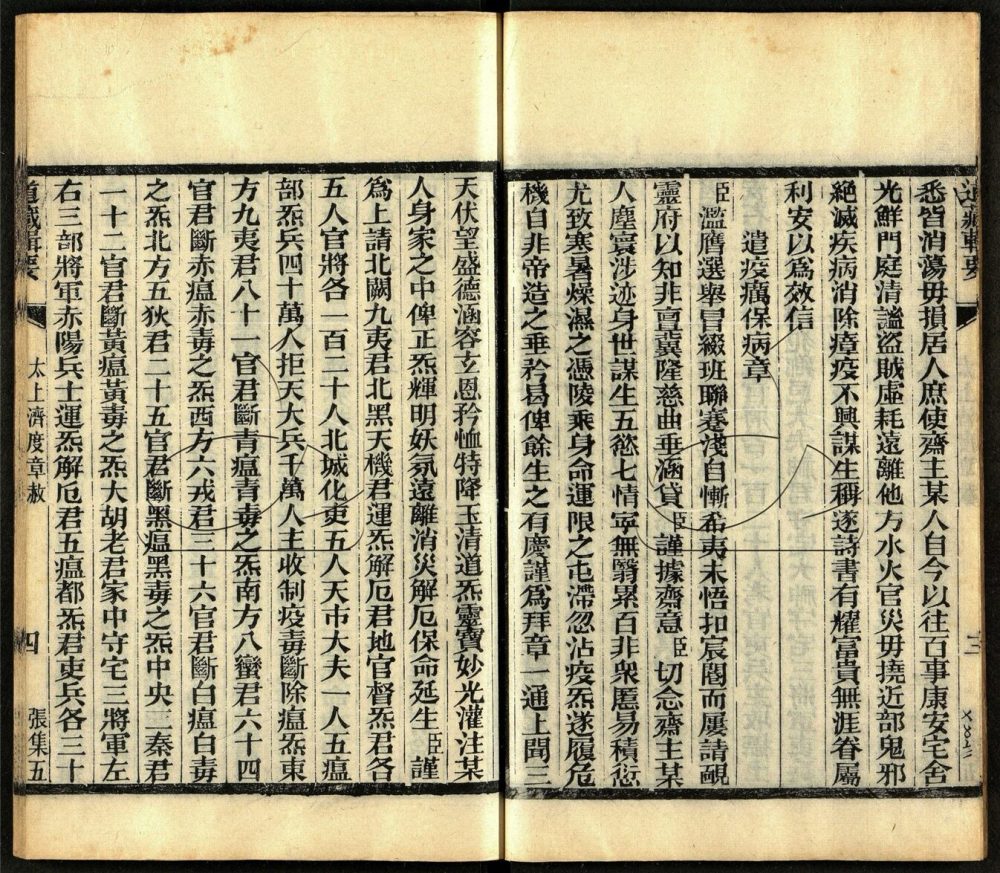 道藏輯要
三
悉皆消蕩毋損居人庶使齋主某人自今以往百事康安宅舍
光鮮門庭清謐盜賊虛耗遠離他方水火官災毋撓近部鬼邪
絕滅疾病消除瘴疫不興謀生稱遂詩書有耀富貴無涯眷屬
利安以為效信
遣疫癘保病章
臣濫膺選舉冒綴班聯蹇淺自慚希夷未悟扣宸閽而屢請覼
靈府以知非亶冀隆慈曲垂涵貸臣謹據齋意臣切念齋主某
人塵寰涉迹身世謀生五慾七情寧無翳累百非衆慝易積愆
尤致寒暑燥濕之憑陵乘身命運限之屯滯忽沾疫炁遂履危
機自非帝造之垂矜曷俾餘生之有慶謹為拜章一通上聞三
天伏望盛德涵容玄恩矜恤特降玉清道炁靈寶妙光灌注某
人身家之中俾正炁輝明妖氛遠離消災解厄保命延生臣謹
為上請北闕九夷君北黑天機君運炁解厄君地官督炁君各
五人官將各一百二十人北城化吏五人天市大夫一人五瘟
部炁兵四十萬人拒天大兵千萬人主收制疫毒斷除瘟炁東
方九夷君八十一官君斷青瘟青毒之炁南方八蠻君六十四
官君斷赤瘟赤毒之炁西方六戎君三十六官君斷白瘟白毒
之炁北方五狄君二十五官君斷黑瘟黑毒之炁中央三秦君
一十二官君斷黃瘟黃毒之炁大胡老君家中守宅三將軍左
右三部將軍赤陽兵士運炁解厄君五瘟都炁君吏兵各三十
道藏輯要
太上濟度章赦
四
張集五